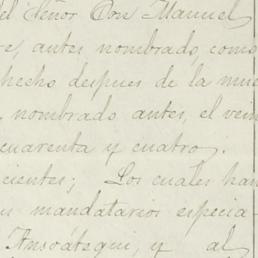 del Señor Don Manuel
re, antes nombrado, como
hecho despues de la mue
nombrado antes, el vein
cuarenta y cuatro.
cientes; Los cuales han
mandatarios especia-
Ansoátegui, y al